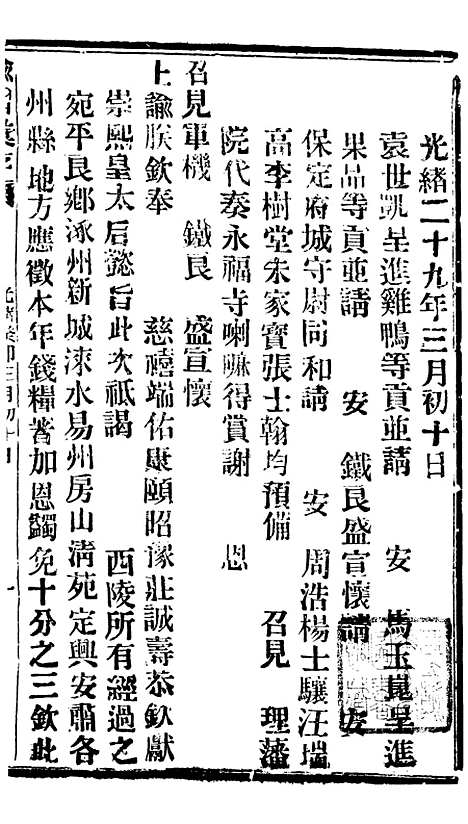 光緒二十九年三月初十日
袁世凱呈進雞鴨等貢並請 安 馬玉崑呈進
果品等貢並請 安 鐵良盛宣懷請 安
保定府城守尉同和請 安 周浩楊士驤汪瑞
高李樹堂朱家寶張士翰均預備 召見 理藩
院代奏永福寺喇嘛得賞謝 恩
召見軍機 鐵良 盛宣懷
上諭朕欽奉 慈禧端佑康頤昭豫莊誠壽恭欽獻
崇熙皇太后懿旨此次祇謁 西陵所有經過之
宛平良鄉涿州新城淶水易州房山清苑定興安肅各
州縣地方應徵本年錢糧著加恩蠲免十分之三欽此
光緒癸卯三月初十日 一